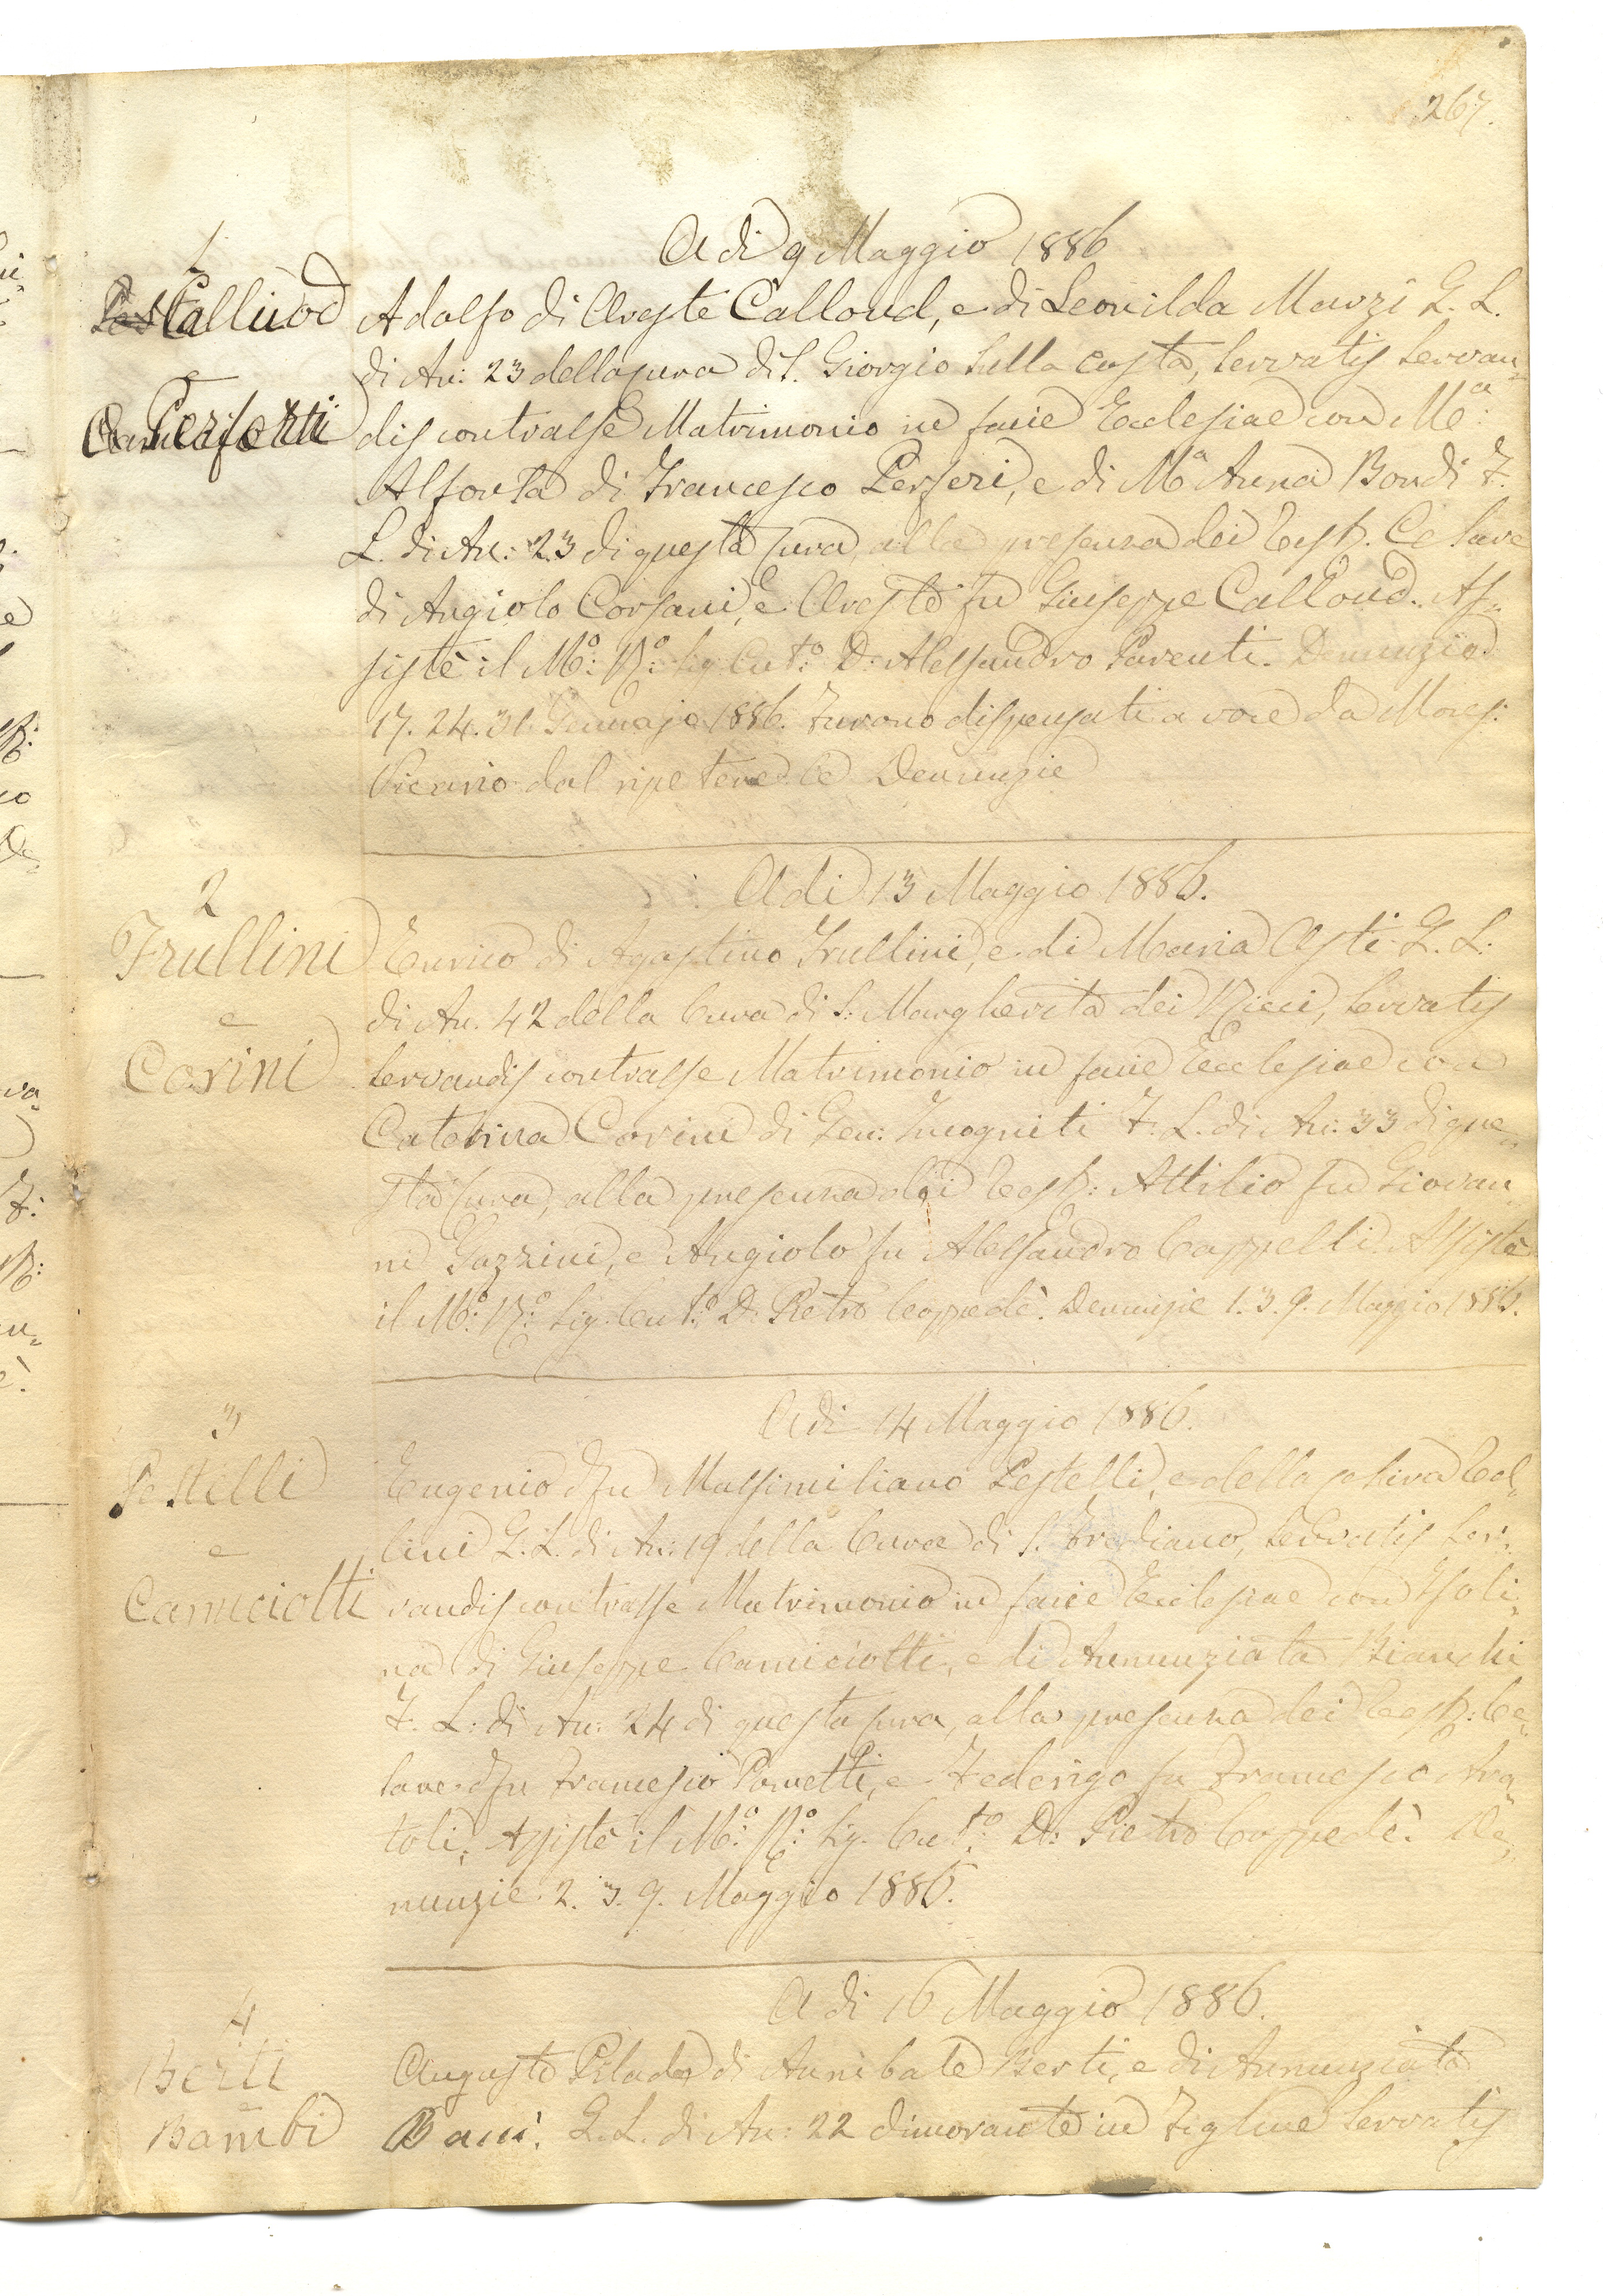 267.
A di 9 Maggio 1886
1
Calliuod
e
Perferti
Adolfo di Oreste Calloud, e di Leonilda Marzi L. L.
di An: 23 della cura di S. Giorgio sulla Costa, servatis servan=
dis contrasse Matrimonio in facie Ecclesiae con Mª:
Alfonsa di Francesco Perferi, e di Mª Anna Bondi F.
L. di An: 23 di questa cura, alla presenza dei Testi. Cesare
di Angiolo Corsani, e Oreste fu Giuseppe Calloud. As=
sistè il Mº: Rº: Sig. Cutº: D: Alessandro Parenti. Denunzie
17. 24. 31. Gennajo 1886. Furono dispensati a voce da Mons:
Vicario dal ripetere le Denunzie
2
A di 13 Maggio 1886.
Frullini
e
Corini
Enrico di Agostino Frullini, e di Maria Asti L. L:
di An. 42 della Cura di S: Margherita dei Ricci, servatis
servandis contrasse Matrimonio in facie Ecclesiae con
Caterina Corini di Gen: Incogniti F. L. di An: 33 di que=
sta Cura, alla presenza dei Testi: Attilio fu Giovan=
ni Gazzini, e Angiolo fu Alessandro Cappelli. Assistè
il Mº: Rº: Sig. Cutº: D. Pietro Coppedè. Denunzie 1. 3. 9. Maggio 1886.
3
A di 14 Maggio 1886.
Pestelli
e
Camiciotti
Eugenio del fu Massimiliano Pestelli, e della Cel=
lini L. L. di An: 19 della Cura di S. Frediano, servatis ser=
vandis contrasse Matrimonio in facie Ecclesiae con Isoli=
na di Giuseppe Camiciotti, e di Annunziata Bianchi
F. L: di An: 24 di questa cura, alla presenza dei Testi: Ce=
sare del fu Francesco Ponetti, e Federigo fu Francesco
toli, Assistè il Mº: Rº: Sig. Cutº: D: Pietro Coppedè. De=
nunzie. 2. 3. 9. Maggio 1886.
4
A di 16 Maggio 1886.
Berti
e
Bambi
Augusto Pilade di Annibale Berti, e di Annunziata
Bani. L. L. di An: 22 dimorante in Figline servatis